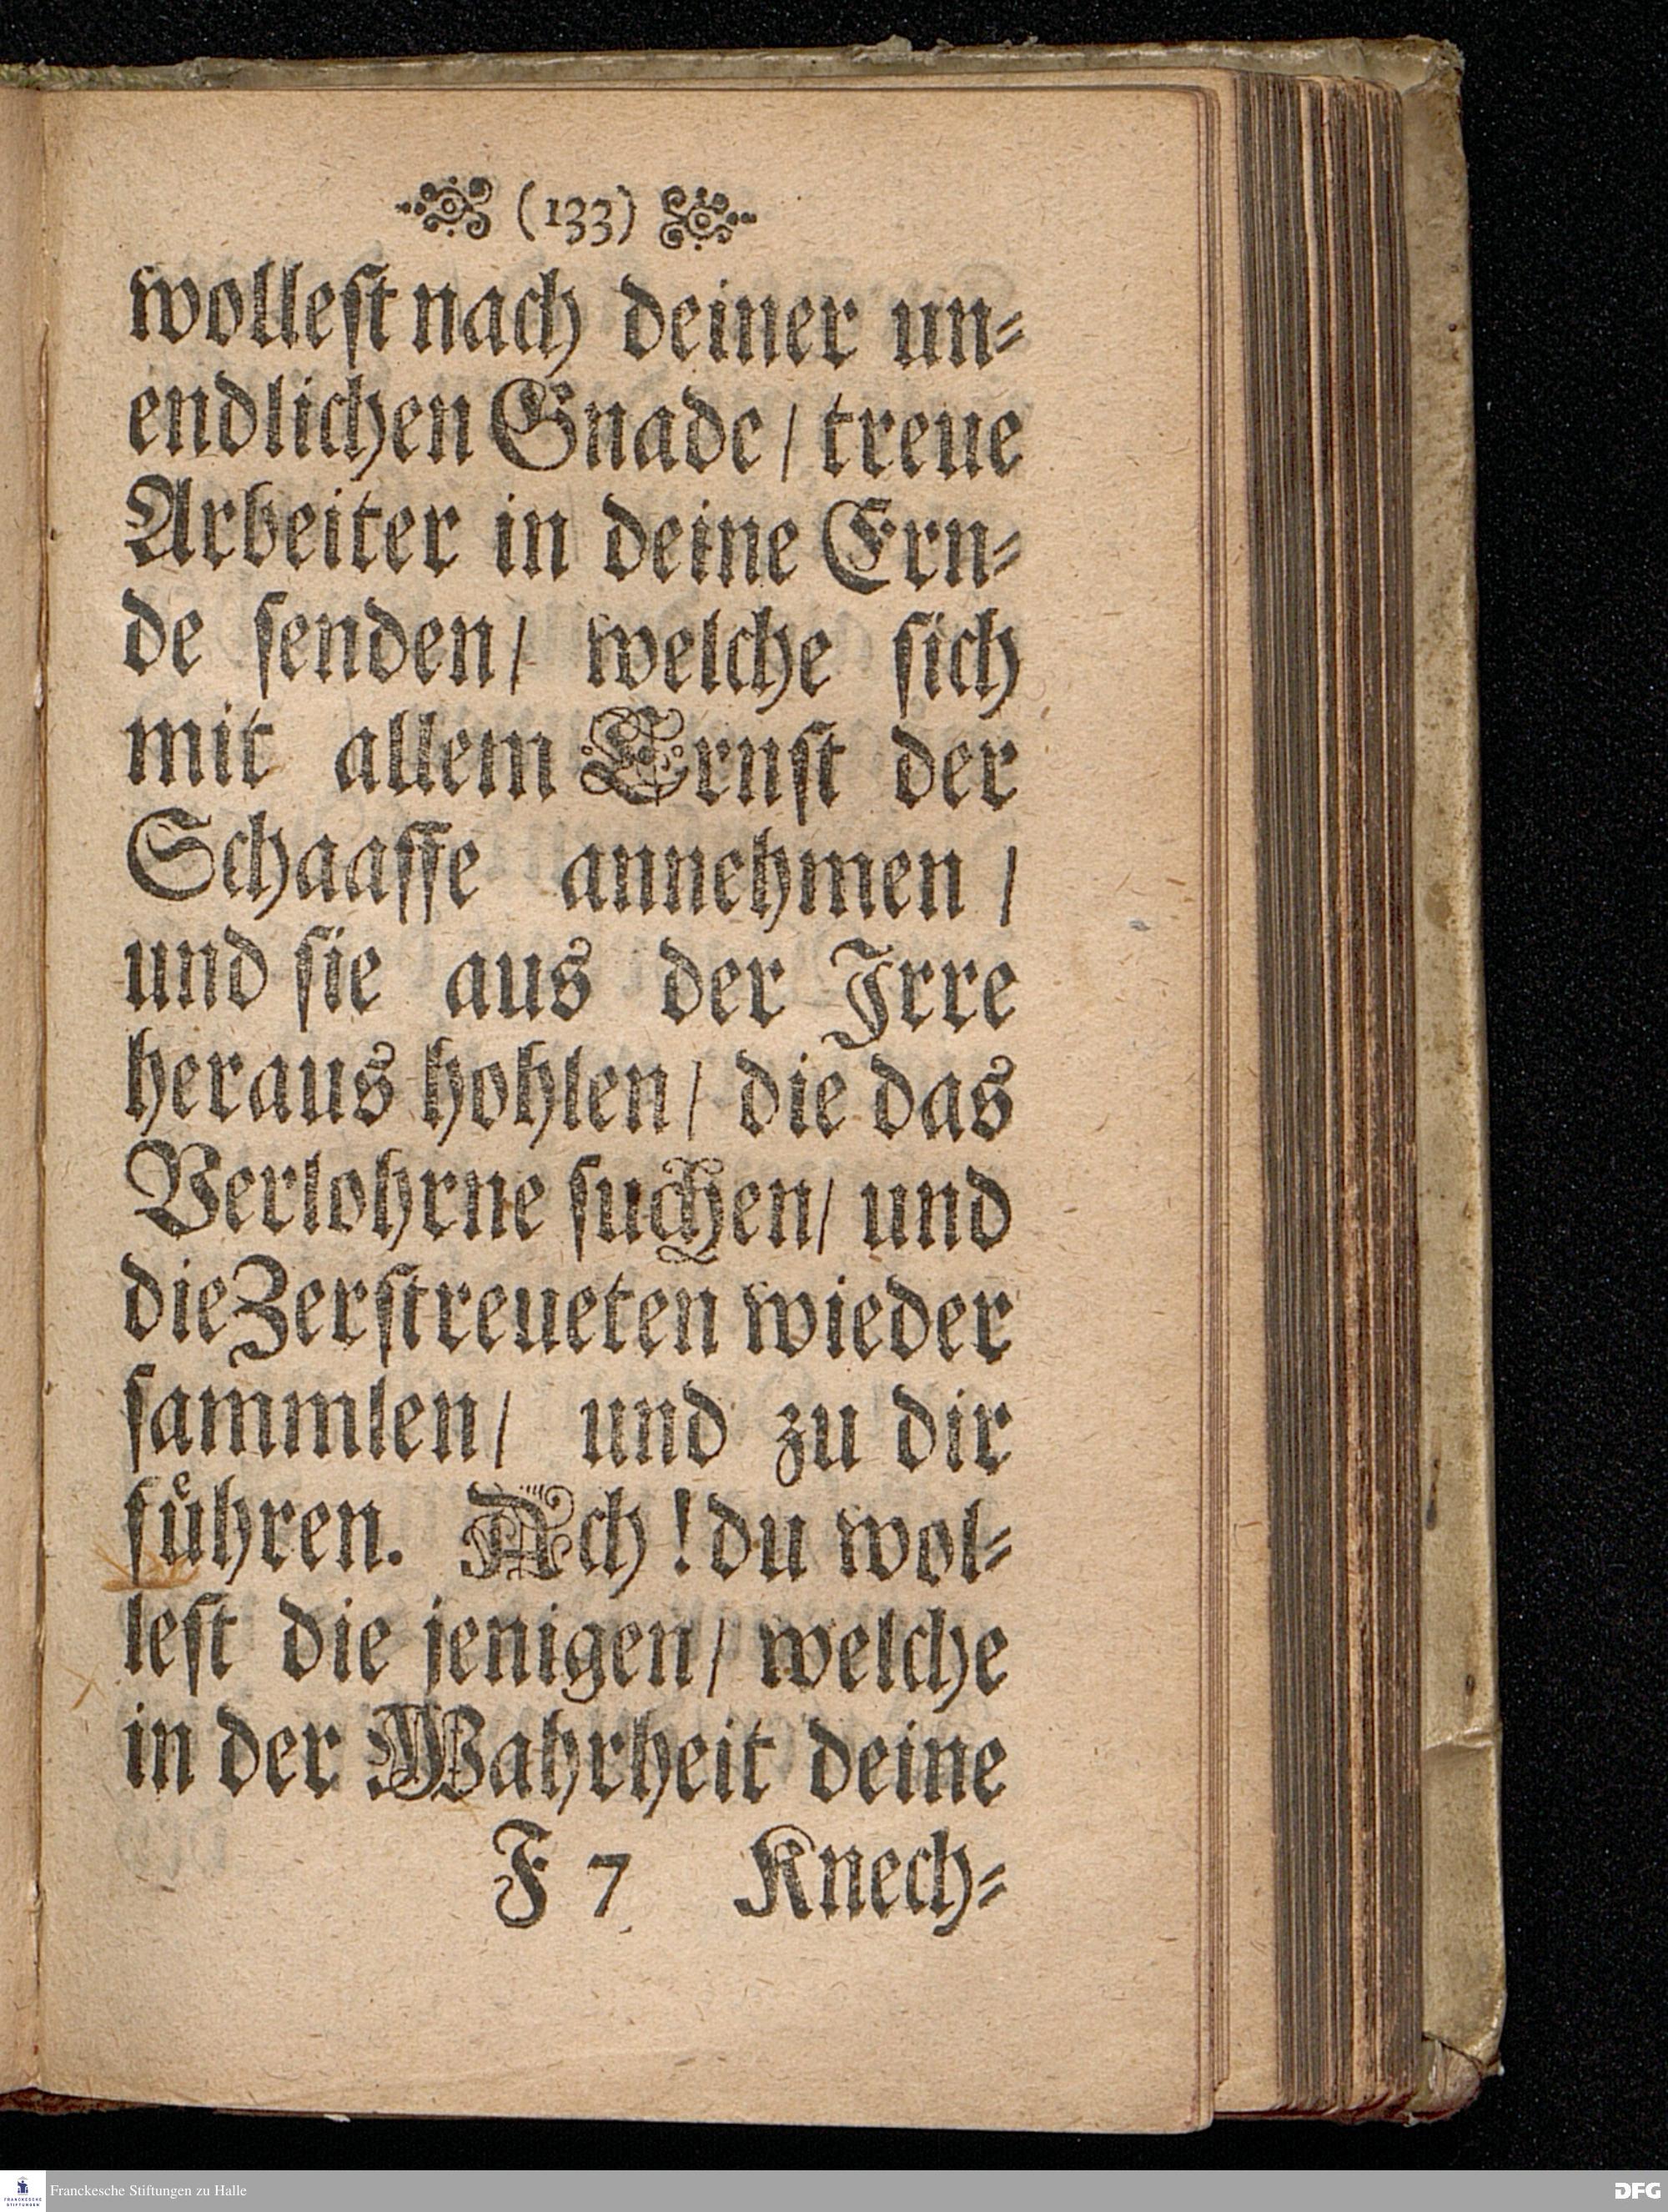 (133)
wolleſt nach deiner un⸗
endlichen Gnade / treue
Arbeiter in deine Ern⸗
de ſenden / welche ſich
mit allem Ernſt der
Schaaffe annehmen /
und ſie aus der Irre
heraus hohlen / die das
Verlohrne ſuchen / und
die Zerſtreueten wieder
ſammlen / und zu dir
fuͤhren. Ach! du wol⸗
leſt die jenigen / welche
in der Wahrheit deine
F 7 Knech⸗
FRANCKESCHE STIFTUNGEN
Franckesche Stiftungen zu Halle
DFG